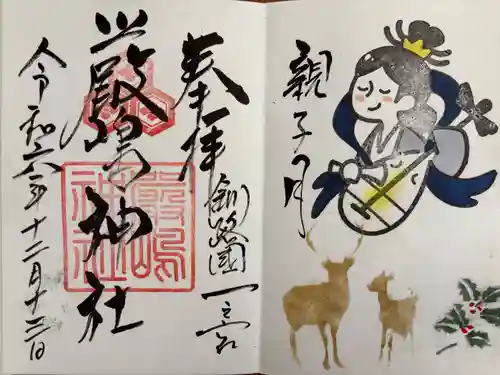 親子月
奉拝
釧路國一之宮
厳島神社
嚴嶋神社
令和六年十二月十二日